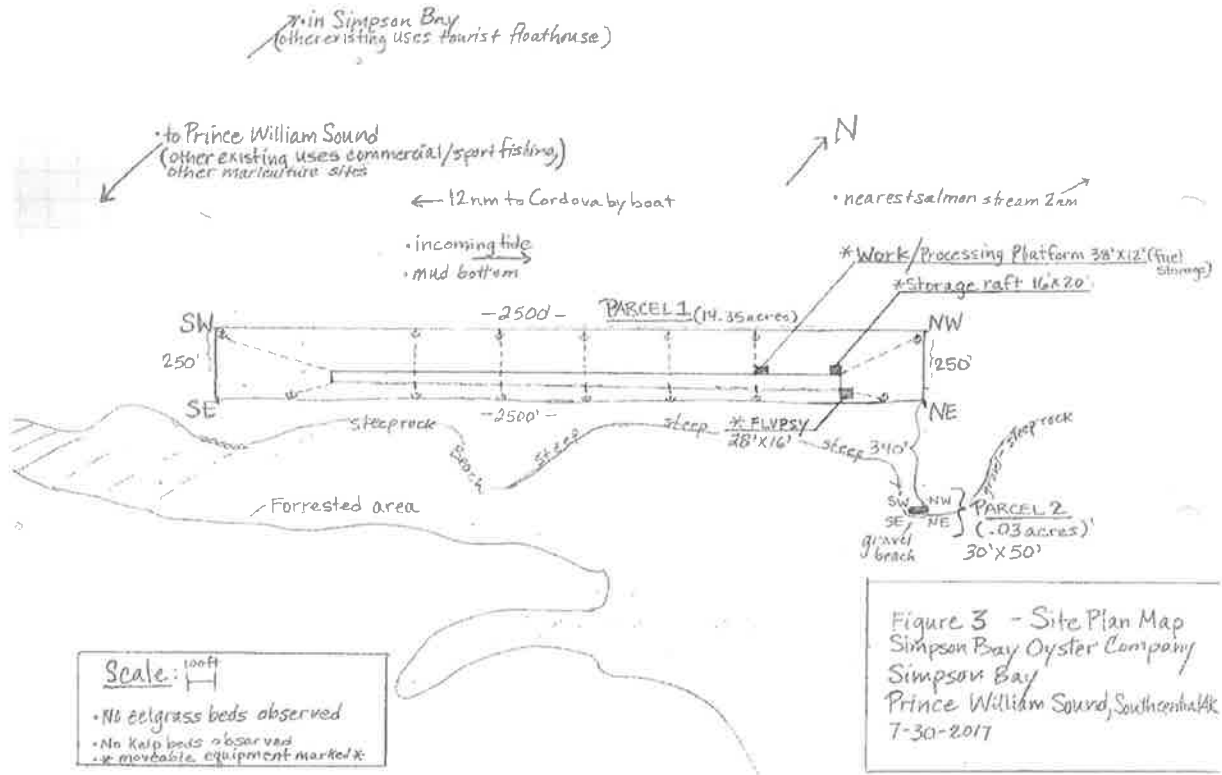 in Simpson Bay
(other existing uses tourist floathouse)
• to Prince William Sound
(other existing uses commercial/sport fishing,)
other mariculture sites
N
← 12nm to Cordova by boat
• nearest salmon stream 2nm
• incoming tide
• mud bottom
* Work/Processing Platform 38'x12' (fuel
storage)
* Storage raft 16'x20'
SW
-2500'-
PARCEL 1 (14.35 acres)
NW
250'
250'
SE
-2500'-
NE
steep rock
Beach
steep
steep
* FLUPSY
28'x16'
steep
340'
steep rock
Forrested area
SW NW
SE NE
PARCEL 2
(.03 acres)
30'x50'
gravel
beach
Scale: 100ft
• No eelgrass beds observed
• No kelp beds observed
• * moveable equipment marked *
Figure 3 - Site Plan Map
Simpson Bay Oyster Company
Simpson Bay
Prince William Sound, Southcentral Ak
7-30-2017